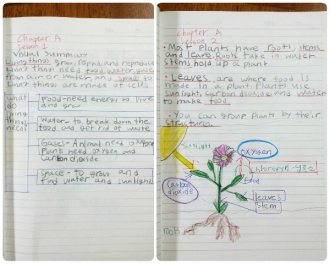 Chapter A
Lesson 1
Visual Summary
Living things grow, change, and reproduce
Living things need food, water, space
from air or water, and space to
living things are made of cells.
What
Food-need energy to live
and grow
living
things
need
Water- to break down the
food and get rid of waste
Gases- Animal need oxygen
Plants need oxygen and
Carbon dioxide
Space- to grow and
find water and sunlight
Chapter A
Lesson 2
• Most Plants have roots, stems,
and leaves. Roots take in water
stems hold up a plant.
• Leaves are where food is
made in a plant. Plants use
sunlight, carbon dioxide and water
to make food.
• You can group plants by their
structure.
Sunlight
oxygen
Carbon
dioxide
food
leaves
stem
Roots